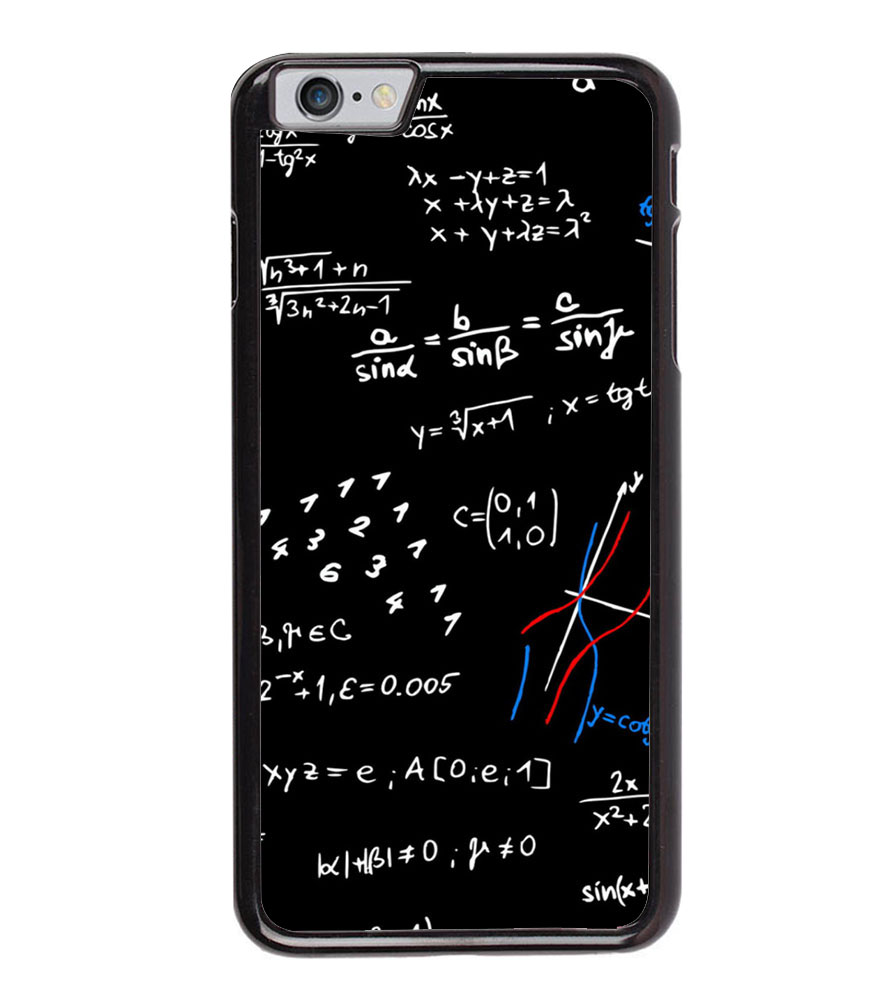 cosx
1-tg²x
λx -y+z=1
x +λy+z=λ
x + y+λz=λ²
√n³+1 + n
∛3n²+2n-1
a/sinα = b/sinβ = c/sinγ
y=∛x+1 ; x=tgt
1 1 1 1
4 3 2 1
6 3 1
4 1
1
C=(0,1
1,0)
y
β,γ∈C
2⁻ˣ+1,ε=0.005
y=cotg
xyz=e ; A[0;e;1]
2x
x²+2
|α|+|β|≠0 ; γ≠0
sin(x+